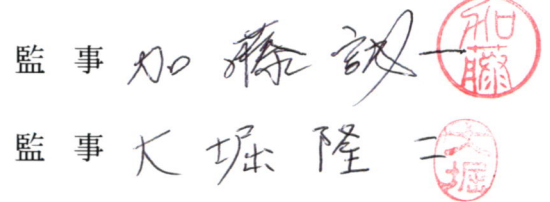 監事 加藤誠一 加藤
監事 大堀隆二 大堀